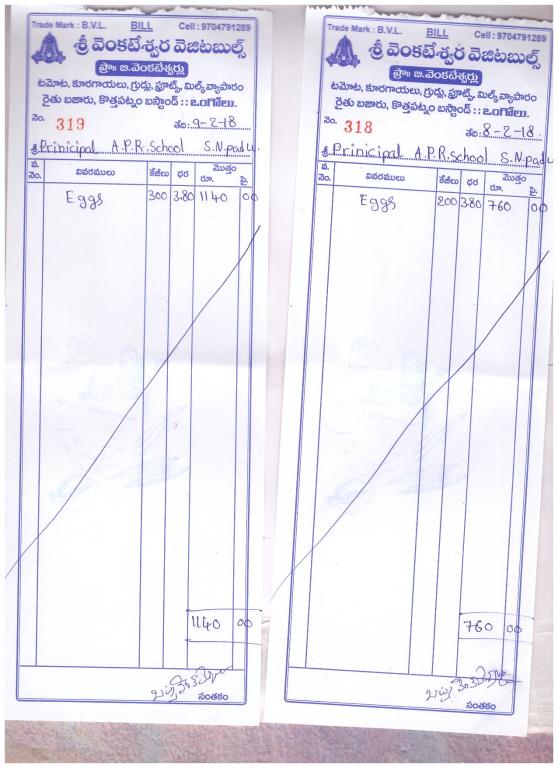 Trade Mark : B.V.L. BILL Cell : 9704791289
శ్రీ వెంకటేశ్వర వెజిటబుల్స్
ప్రొః బి.వెంకటేశ్వర్లు
టమోట, కూరగాయలు, గ్రుడ్లు, ఫ్రూట్స్, మిల్క్ వ్యాపారం
రైతు బజారు, కొత్తపట్నం బస్టాండ్ :: ఒంగోలు.
నెం. 319 తేది: 9-2-18
శ్రీ Prinicipal A.P.R.School S.N.padu.
వ. నెం. వివరములు కేజీలు ధర మొత్తం రూ. పై.
Eggs 300 3.80 1140 00
1140 00
సంతకం
Trade Mark : B.V.L. BILL Cell : 9704791289
శ్రీ వెంకటేశ్వర వెజిటబుల్స్
ప్రొః బి.వెంకటేశ్వర్లు
టమోట, కూరగాయలు, గ్రుడ్లు, ఫ్రూట్స్, మిల్క్ వ్యాపారం
రైతు బజారు, కొత్తపట్నం బస్టాండ్ :: ఒంగోలు.
నెం. 318 తేది: 8-2-18.
శ్రీ Prinicipal A.P.R.School S.N.padu
వ. నెం. వివరములు కేజీలు ధర మొత్తం రూ. పై.
Eggs 200 3.80 760 00
760 00
సంతకం